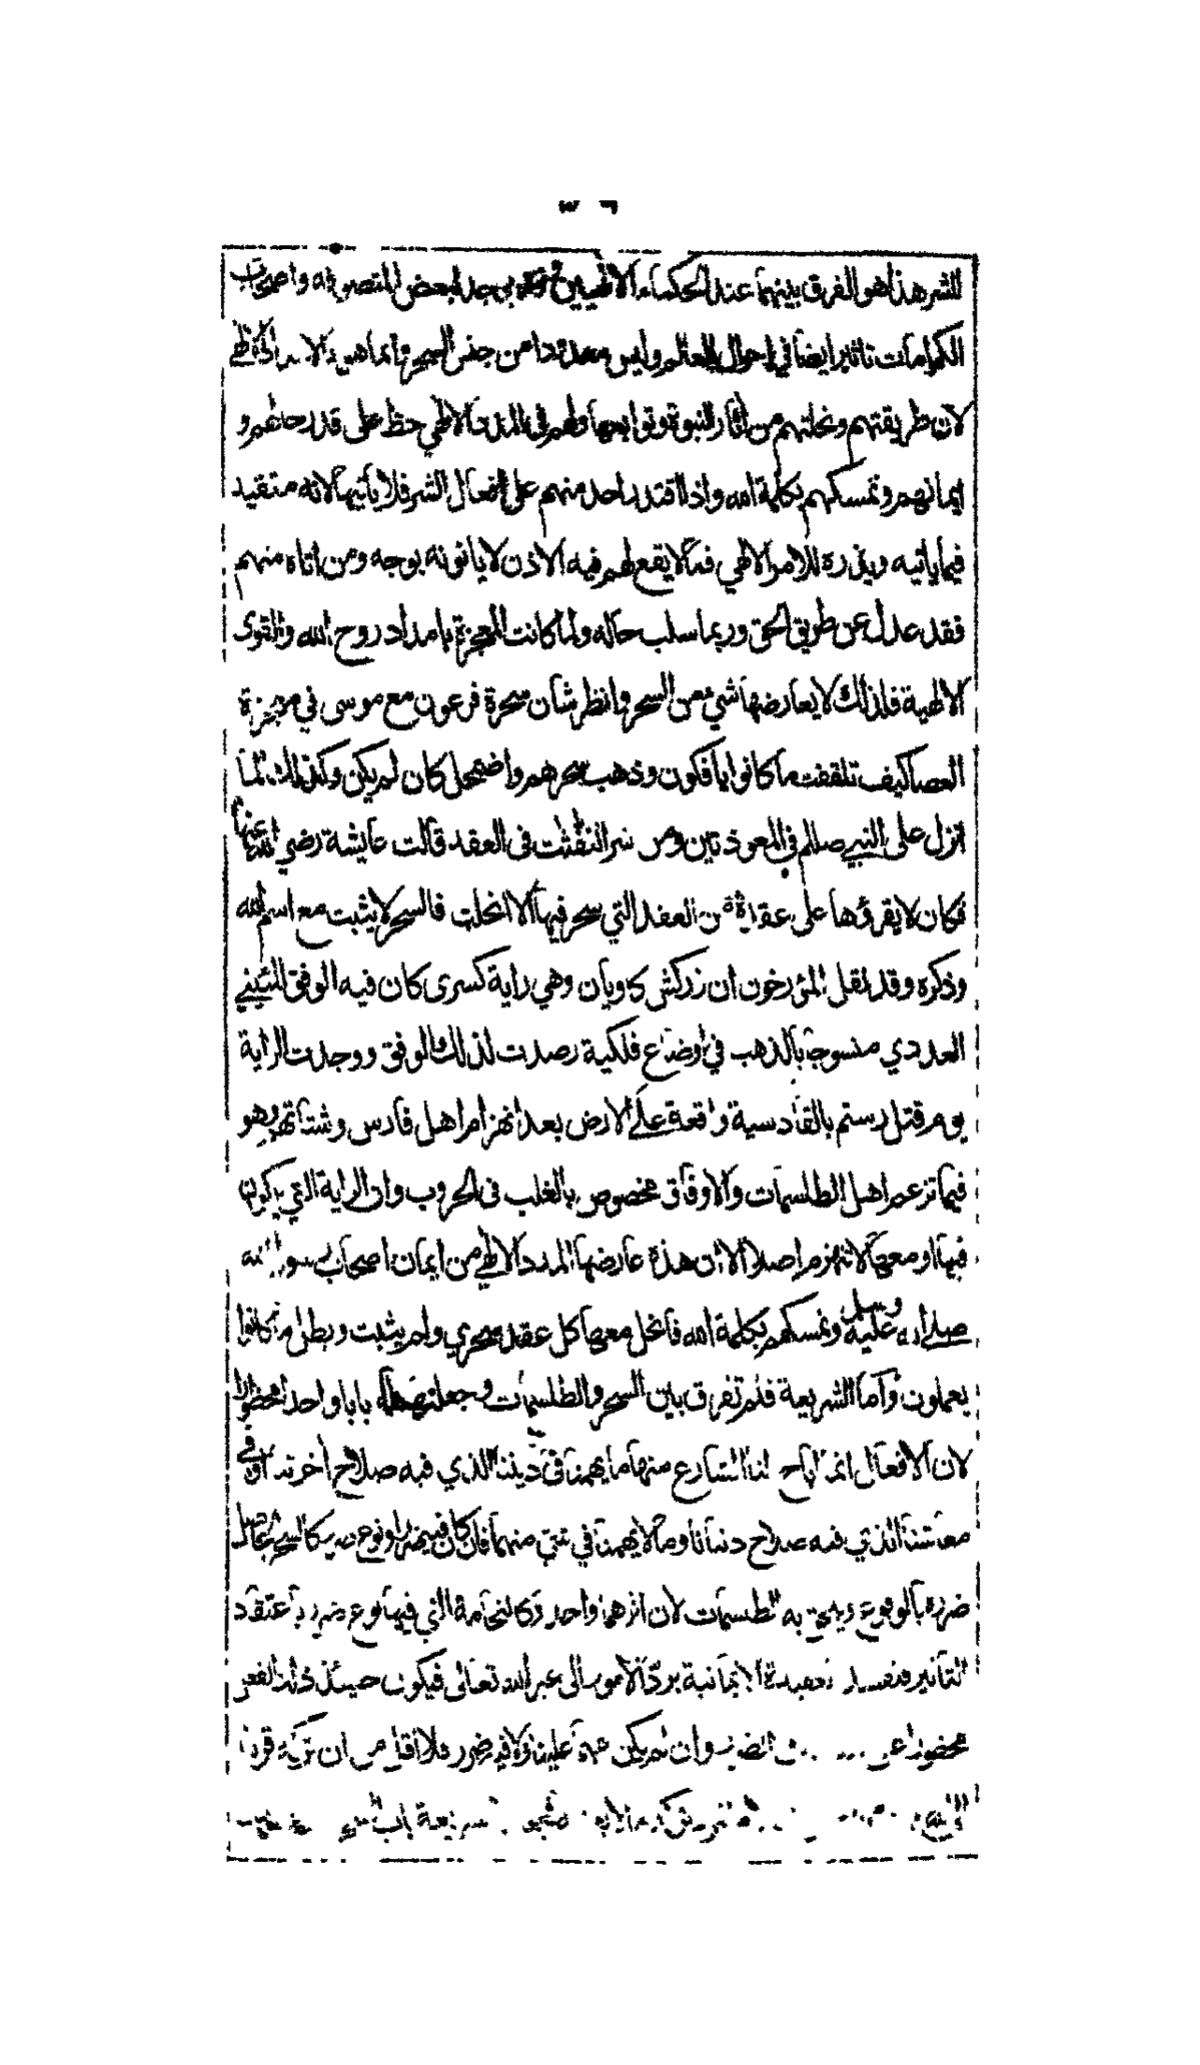 ٣٦
للشر هذا هو الفرق بينهما عند الحكماء الالهيين وقد يوجد لبعض المتصوفه واصحاب
الكرامات تاثير ايضا في احوال العالم وليس معدودا من جنس السحر وانما هو بالامداد الالهي
لان طريقتهم ونحلتهم من اثار النبوة وتوابعها ولهم في المدد الالهي حظ على قدر حالهم و
ايمانهم وتمسكهم بكلمة الله واذا اقتدر احد منهم على افعال الشر فلا ياتيها لانه متقيد
فيما ياتيه ويذره للامر الالهي فما لا يقع لهم فيه الاذن لا ياتونه بوجه ومن اتاه منهم
فقد عدل عن طريق الحق وربما سلب حاله ولما كانت المعجزة بامداد روح الله والقوى
الالهية فلذلك لا يعارضها شئ من السحر وانظر شان سحرة فرعون مع موسى في معجزة
العصا كيف تلقفت ما كانوا يافكون وذهب سحرهم واضمحل كان لم يكن وكذلك لما
انزل على النبي صللم في المعوذتين ومن شر النفثت في العقد قالت عايشة رضي الله عنها
فكان لا يقرؤها على عقدة من العقد التي سحر فيها الا انحلت فالسحر لا يثبت مع اسم الله
وذكره وقد نقل المؤرخون ان زركش كاويان وهي راية كسرى كان فيه الوفق المئيني
العددي منسوجا بالذهب في اوضاع فلكية رصدت لذلك الوفق ووجدت الراية
يوم قتل رستم بالقادسية واقعة على الارض بعد انهزام اهل فارس وشتاتهم وهو
فيما تزعم اهل الطلسمات والاوفاق مخصوص بالغلب في الحروب وان الراية التي يكون
فيها او معها لا تنهزم اصلا الا ان هذه عارضها المدد الالهي من ايمان اصحاب رسول الله
صلى الله عليه وسلم وتمسكهم بكلمة الله فانحل معها كل عقد سحري ولم يثبت وبطل ما كانوا
يعملون واما الشريعة فلم تفرق بين السحر والطلسمات وجعلته كله بابا واحدا محظورا
لان الافعال انما اباح لنا الشارع منها ما يهمنا في ديننا الذي فيه صلاح اخرتنا او في
معاشنا الذي فيه صلاح دنيانا وما لا يهمنا في شئ منهما فان كان فيه ضرر او نوع ضرر كالسحر الحاصل
ضرره بالوقوع ويلحق به الطلسمات لان اثرهما واحد وكالنجامة التي فيها نوع ضرر باعتقاد
التاثير فتفسد العقيدة الايمانية بردّ الامور الى غير الله تعالى فيكون حينئذ ذلك الفعل
محظورا على ... الضرر وان لم يكن مهما علينا ولا فيه ضرر فلا اقل من ان تركه قربة
الى الله ... شريعة باب